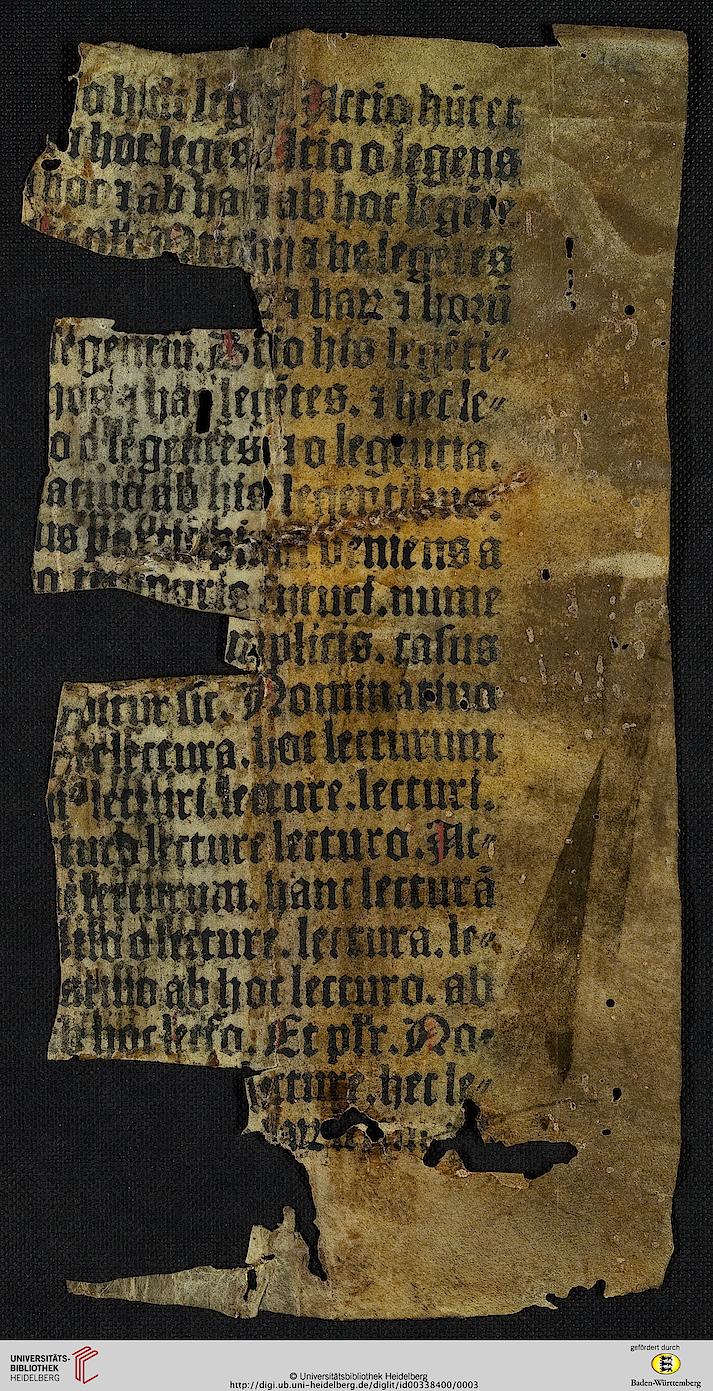 o huic leg Actio hūc et
hoc legēs Actio o legens
hoc ⁊ ab ha ⁊ ab hoc legēte
⁊ he legētes
⁊ haꝝ ⁊ horū
legentiū. Dtō his legēti⸗
hos ⁊ has legētes. ⁊ hec le⸗
o o legentes ⁊ o legentia.
atiuo ab his legentibus.
veniens a
futuri. nume
mplicis. casus
sic. Nominatiuo
lectura. hoc lecturum
lecturi. lecture. lecturi.
lecture lecturo. Ac⸗
lecturum. hanc lecturā
o lecture. lectura. le⸗
atiuo ab hoc lecturo. ab
hoc Et plr. No⸗
lecture. hec le⸗
UNIVERSITÄTS-
BIBLIOTHEK
HEIDELBERG
© Universitätsbibliothek Heidelberg
http://digi.ub.uni-heidelberg.de/diglit/id00338400/0003
gefördert durch
Baden-Württemberg